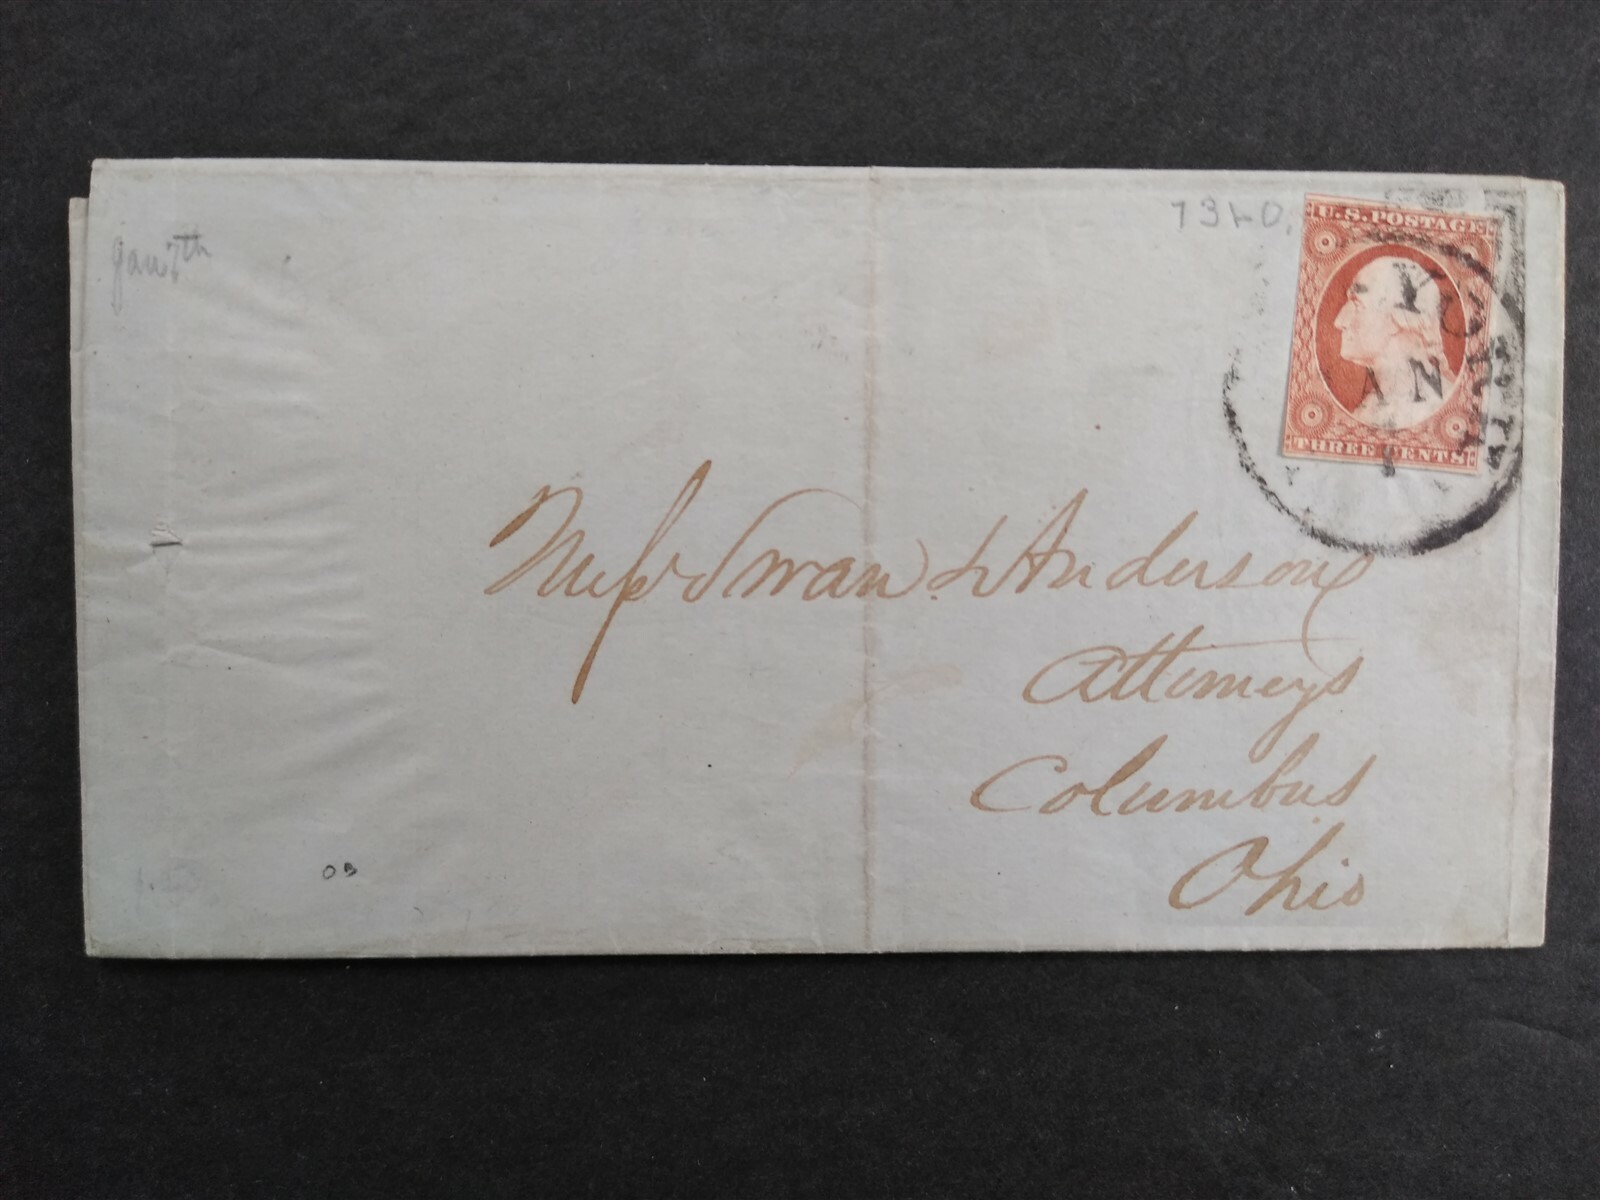 Jan 7th
U.S. POSTAGE
YORK
JAN
THREE CENTS
Messrs Swan & Anderson
Attorneys
Columbus
Ohio
OB